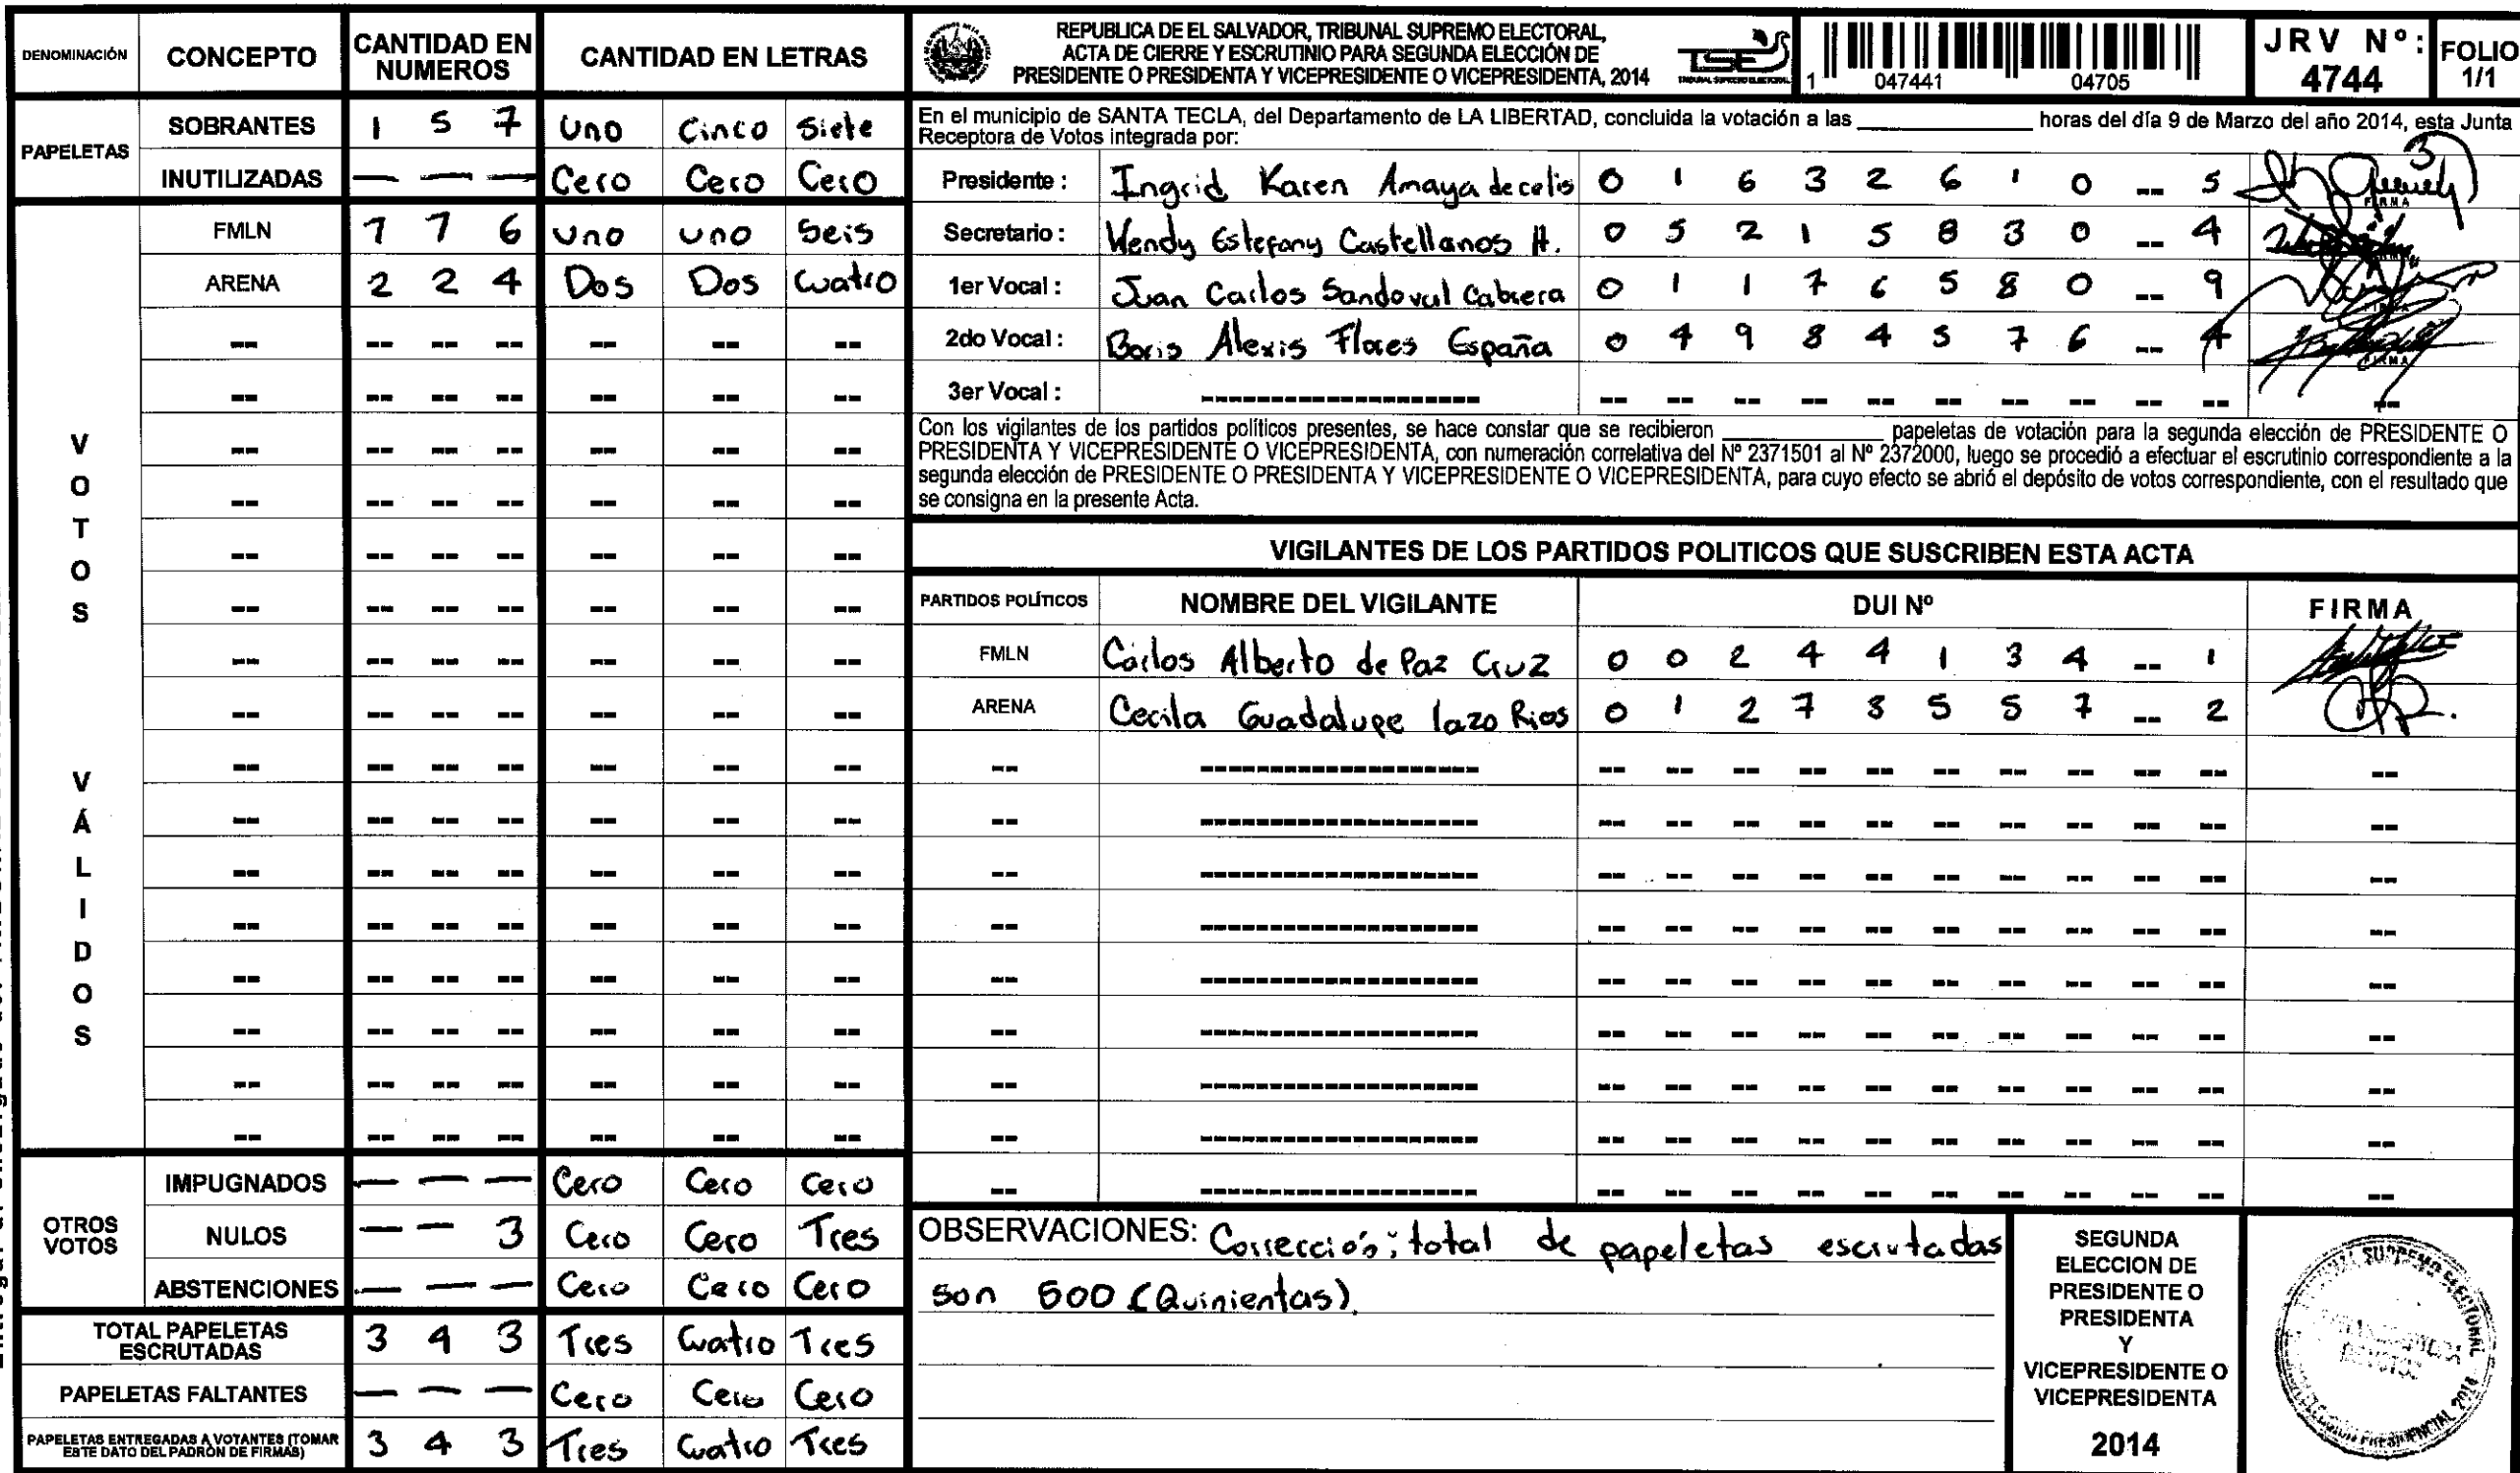 DENOMINACIÓN CONCEPTO CANTIDAD EN NUMEROS CANTIDAD EN LETRAS
PAPELETAS
SOBRANTES 1 5 7 Uno Cinco Siete
INUTILIZADAS — — — Cero Cero Cero
VOTOS VÁLIDOS
FMLN 1 1 6 uno uno Seis
ARENA 2 2 4 Dos Dos Cuatro
OTROS VOTOS
IMPUGNADOS — — — Cero Cero Cero
NULOS — — 3 Cero Cero Tres
ABSTENCIONES — — — Cero Cero Cero
TOTAL PAPELETAS ESCRUTADAS 3 4 3 Tres Cuatro Tres
PAPELETAS FALTANTES — — — Cero Cero Cero
PAPELETAS ENTREGADAS A VOTANTES (TOMAR ESTE DATO DEL PADRÓN DE FIRMAS) 3 4 3 Tres Cuatro Tres
REPUBLICA DE EL SALVADOR, TRIBUNAL SUPREMO ELECTORAL,
ACTA DE CIERRE Y ESCRUTINIO PARA SEGUNDA ELECCIÓN DE
PRESIDENTE O PRESIDENTA Y VICEPRESIDENTE O VICEPRESIDENTA, 2014
TSE
TRIBUNAL SUPREMO ELECTORAL
1 047441 04705
JRV Nº: 4744
FOLIO 1/1
En el municipio de SANTA TECLA, del Departamento de LA LIBERTAD, concluida la votación a las ________ horas del día 9 de Marzo del año 2014, esta Junta
Receptora de Votos integrada por:
Presidente : Ingrid Karen Amaya de celis 0 1 6 3 2 6 1 0 -- 5
FIRMA
Secretario : Wendy Estefany Castellanos H. 0 5 2 1 5 8 3 0 -- 4
1er Vocal : Juan Carlos Sandoval Cabrera 0 1 1 7 6 5 8 0 -- 9
2do Vocal : Boris Alexis Flores España 0 4 9 8 4 5 7 6 -- 4
3er Vocal :
Con los vigilantes de los partidos políticos presentes, se hace constar que se recibieron ________ papeletas de votación para la segunda elección de PRESIDENTE O
PRESIDENTA Y VICEPRESIDENTE O VICEPRESIDENTA, con numeración correlativa del Nº 2371501 al Nº 2372000, luego se procedió a efectuar el escrutinio correspondiente a la
segunda elección de PRESIDENTE O PRESIDENTA Y VICEPRESIDENTE O VICEPRESIDENTA, para cuyo efecto se abrió el depósito de votos correspondiente, con el resultado que
se consigna en la presente Acta.
VIGILANTES DE LOS PARTIDOS POLITICOS QUE SUSCRIBEN ESTA ACTA
PARTIDOS POLÍTICOS NOMBRE DEL VIGILANTE DUI Nº FIRMA
FMLN Carlos Alberto de Paz Cruz 0 0 2 4 4 1 3 4 -- 1
ARENA Cecila Guadalupe lazo Rios 0 1 2 7 3 5 5 7 -- 2
OBSERVACIONES: Correccio's; total de papeletas escrutadas
son 500 (Quinientas).
SEGUNDA
ELECCION DE
PRESIDENTE O
PRESIDENTA
Y
VICEPRESIDENTE O
VICEPRESIDENTA
2014